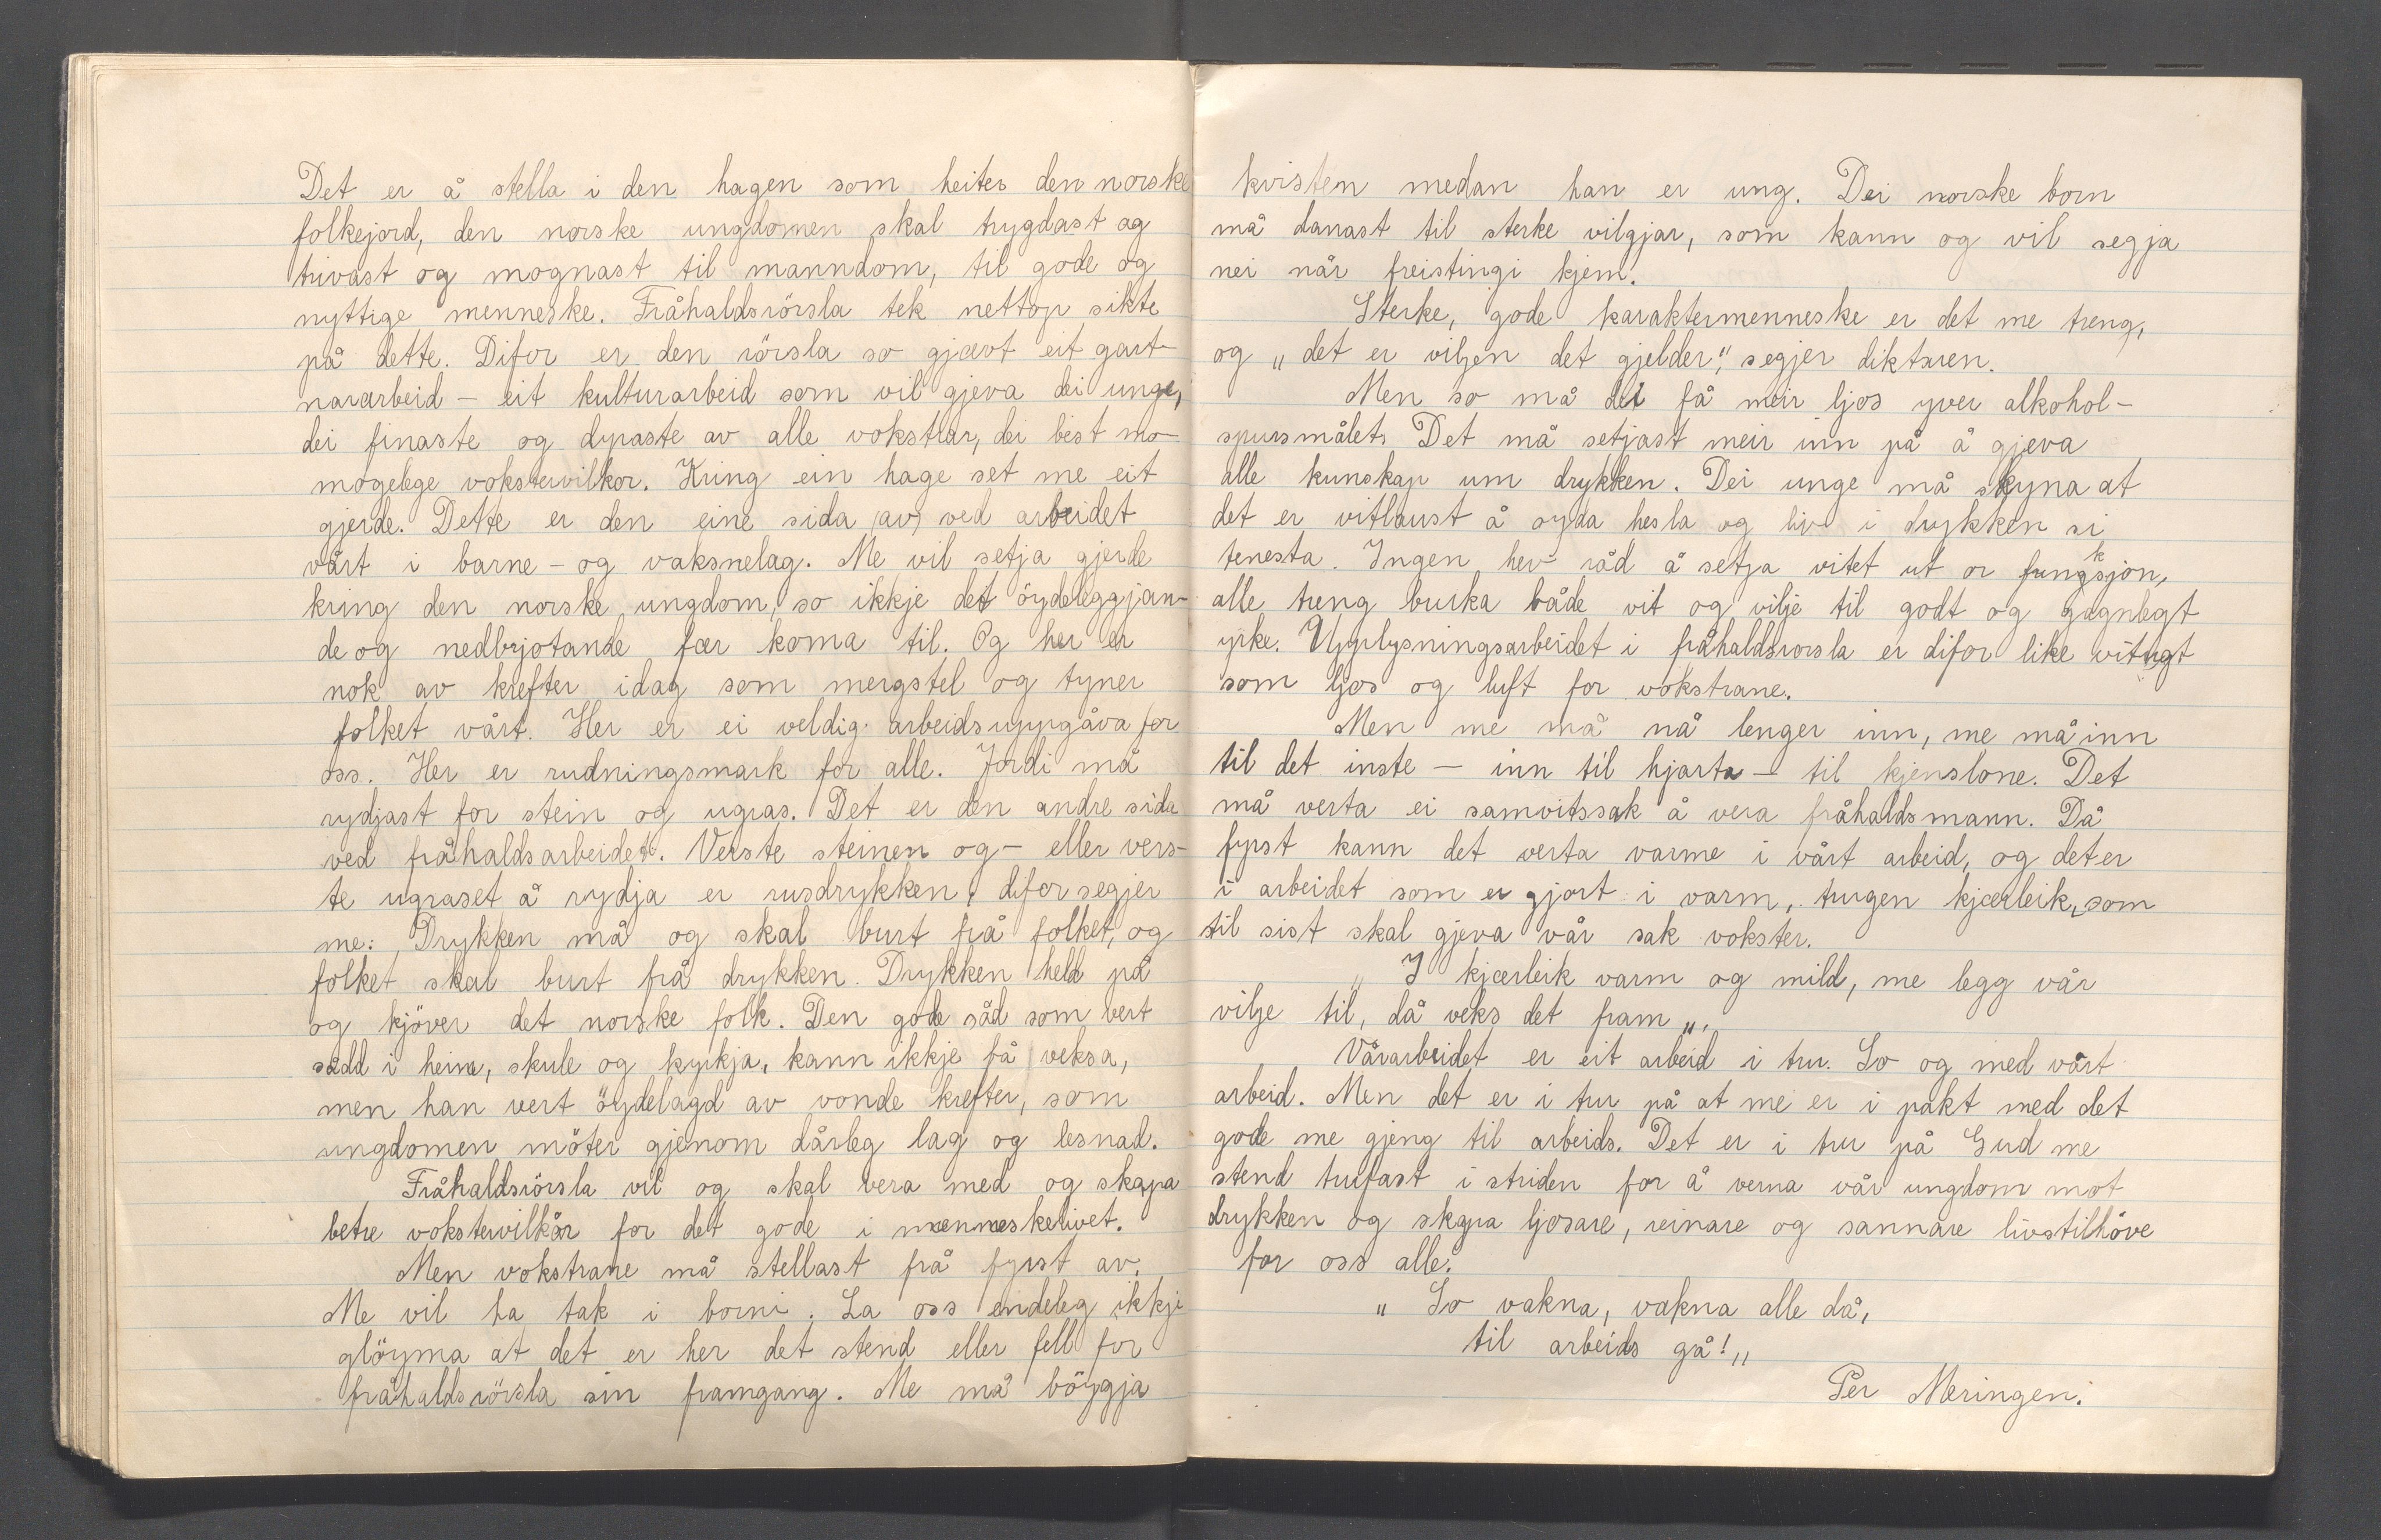 Det er å stella i den hagen som heiter den norske
folkejord, den norske ungdomen skal trygdast og
trivast og mognast til manndom, til gode og
nyttige menneske. Fråhaldsrörsla tek nettop sikte
på dette. Difor er den rörsla so gjævt eit gart-
nararbeid - eit kulturarbeid som vil gjeva dei unge,
dei finaste og dyraste av alle vokstrar, dei best mo-
mogelege vokstervilkor. Kring ein hage set me eit
gjerde. Dette er den eine sida av ved arbeidet
vårt i barne - og vaksnelag. Me vil setja gjerde
kring den norske ungdom, so ikkje det öydeleggjan-
de og nedbrjotande fær koma til. Og her er
nok av krefter idag som mergstel og tyner
folket vårt. Her er ei veldig arbeidsuppgåva for
oss. Her er rudningsmark for alle. Jordi må
rydjast for stein og ugras. Det er den andre sida
ved fråhaldsarbeidet. Verste steinen og - eller vers-
te ugraset å rydja er rusdrykken, difor segjer
me: Drykken må og skal burt frå folket, og
folket skal burt frå drykken. Drykken held på
og kjöver det norske folk. Den gode såd som vert
sådd i heim, skule og kyrkja, kann ikkje få veksa,
men han vert öydelagd av vonde krefter, som
ungdomen möter gjenom dårleg lag og lesnad.
Fråhaldsrörsla vil og skal vera med og skapa
betre vokstervilkår for det gode i menneskelivet.
Men vokstrane må stellast frå fyrst av.
Me vil ha tak i borni. La oss endeleg ikkje
glöyma at det er her det stend eller fell for
fråhaldsrörsla sin framgang. Me må böyggja
kvisten medan han er ung. Dei norske born
må danast til sterke vilgjar, som kann og vil segja
nei når freistingi kjem.
Sterke, gode karaktermenneske er det me treng,
og „det er viljen det gjelder", segjer diktaren.
Men so må det få meir ljos yver alkohol-
spursmålet. Det må setjast meir inn på å gjeva
alle kunskap um drykken. Dei unge må skyna at
det er vitlaust å oyda hesla og liv i drykken si
tenesta. Ingen hev råd å setja vitet ut or fungksjon,
alle treng bruka både vit og vilje til godt og gagnlegt
yrke. Upplysningsarbeidet i fråhaldsrorsla er difor like vitugt
som ljos og luft for vokstrane.
Men me må nå lenger inn, me må inn
til det inste - inn til hjarta - til kjenslone. Det
må verta ei samvitssak å vera fråhaldsmann. Då
fyrst kann det verta varme i vårt arbeid, og det er
i arbeidet som er gjort i varm, trugen kjærleik, som
til sist skal gjeva vår sak vokster.
„ I kjærleik varm og mild, me legg vår
vilje til, då veks det fram „.
Vårarbeidet er eit arbeid i tru. So og med vårt
arbeid. Men det er i tru på at me er i pakt med det
gode me gjeng til arbeids. Det er i tru på Gud me
stend trufast i striden for å verna vår ungdom mot
drykken og skapa ljosare, reinare og sannare livstilhöve
for oss alle.
„ So vakna, vakna alle då,
til arbeids gå! „
Per Meringen.